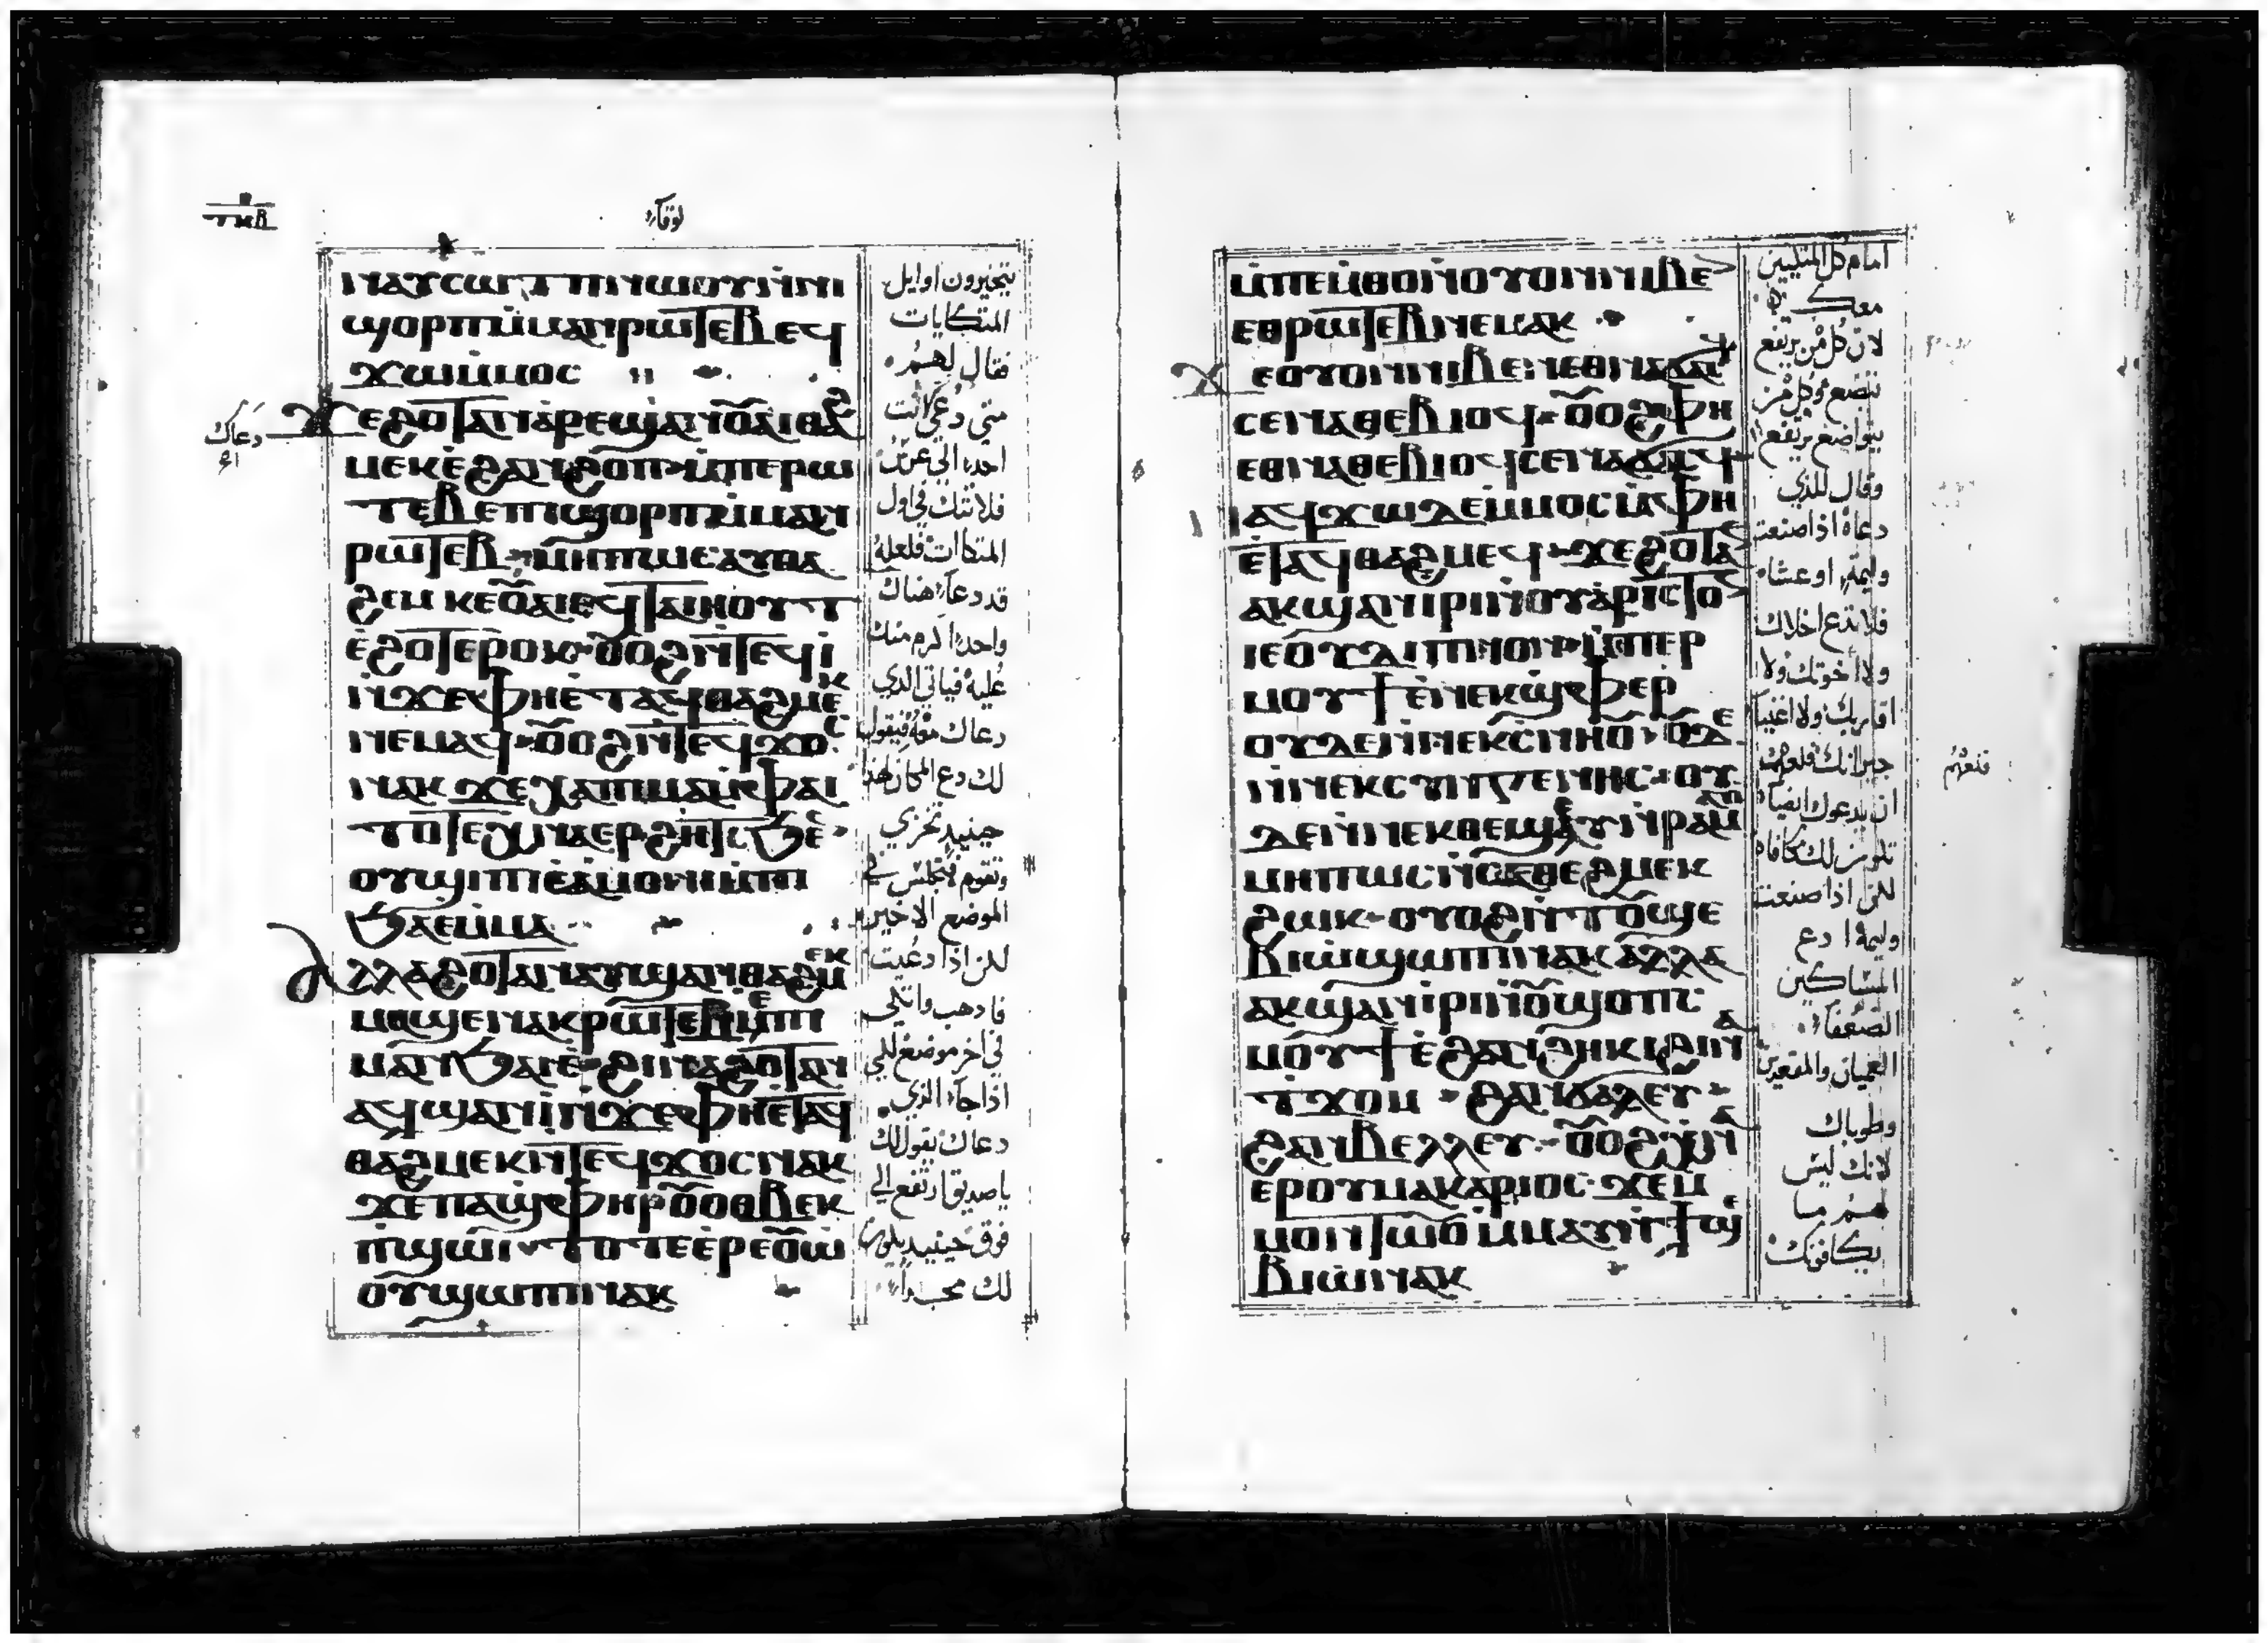 ⲧⲙⲃ
لوقا
ⲛⲁⲩⲥⲱⲧⲡ ⲛⲱⲟⲩ ⲛⲛⲓ
ϣⲟⲣⲡ ⲙⲙⲁⲛⲣⲱⲧⲉⲃ ⲉϥ
ϫⲱ ⲙⲙⲟⲥ
ϫⲉ ϩⲟⲧⲁⲛ ⲁⲣⲉϣⲁⲛ ⲟⲩⲁⲓ ⲑⲁϩ
ⲙⲉⲕ ⲉϩⲁⲛϩⲟⲡ ⲙⲡⲉⲣⲣⲱ
ⲧⲉⲃ ⲉⲡϣⲟⲣⲡ ⲙⲙⲁⲛ
ⲣⲱⲧⲉⲃ ⲙⲏⲡⲱⲥ ⲉⲁⲩⲑⲁ
ϩⲉⲙ ⲕⲉⲟⲩⲁⲓ ⲉϥⲧⲁⲓⲏⲟⲩⲧ
ⲉϩⲟⲧⲉⲣⲟⲕ ⲟⲩⲟϩ ⲛⲧⲉϥⲓ
ⲛϫⲉ ⲫⲏ ⲉⲧⲁϥⲑⲁϩⲙⲉⲕ
ⲛⲉⲙⲁϥ ⲟⲩⲟϩ ⲛⲧⲉϥϫⲟⲥ
ⲛⲁⲕ ϫⲉ ⲭⲁ ⲡⲙⲁ ⲙⲫⲁⲓ
ⲧⲟⲧⲉ ⲭⲛⲁⲉⲣϩⲏⲧⲥ ϧⲉⲛ
ⲟⲩϣⲓⲡⲓ ⲉⲁⲙⲟⲛⲓ ⲙⲡⲓ
ϧⲁⲉ ⲙⲙⲁ
ⲁⲗⲗⲁ ϩⲟⲧⲁⲛ ⲁⲩϣⲁⲛⲑⲁϩⲙⲉⲕ
ⲙⲁϣⲉⲛⲁⲕ ⲣⲱⲧⲉⲃ ϧⲉⲛ ⲡⲓ
ⲙⲁ ⲛϧⲁⲉ ϩⲓⲛⲁ ϩⲟⲧⲁⲛ
ⲁϥϣⲁⲛⲓ ⲛϫⲉ ⲫⲏ ⲉⲧⲁϥ
ⲑⲁϩⲙⲉⲕ ⲛⲧⲉϥϫⲟⲥ ⲛⲁⲕ
ϫⲉ ⲡⲁϣⲫⲏⲣ ⲟⲩⲟⲑⲃⲉⲕ
ⲉⲡϣⲱⲓ ⲧⲟⲧⲉ ⲉⲣⲉ ⲟⲩⲱ
ⲟⲩ ϣⲱⲡⲓ ⲛⲁⲕ
يتخيرون اوايل
المتكايات
فقال لهم
متى دعاك
احد الى عرس
فلا تتك في اول
المتكاات فلعله
قد دعا هناك
واحد اكرم منك
عليه فياتي الذي
دعاك معه فيقول
لك دع المكان لهذا
حينيد تخزي
وتقوم فتجلس في
الموضع الاخير
لكن اذا دعيت
فاذهب واتكي
في اخر موضع لكي
اذا جا الذي
دعاك يقول لك
يا صديق ارتفع الى
فوق حينيد يكون
لك مجد
دعاك
ⲙⲡⲉⲙⲑⲟ ⲛⲟⲩⲟⲛ ⲛⲓⲃⲉⲛ
ⲉⲑⲣⲱⲧⲉⲃ ⲛⲉⲙⲁⲕ
ϫⲉ ⲟⲩⲟⲛ ⲛⲓⲃⲉⲛ ⲉⲑⲛⲁϭⲁⲥϥ
ⲥⲉⲛⲁⲑⲉⲃⲓⲟϥ ⲟⲩⲟϩ ⲫⲏ
ⲉⲑⲛⲁⲑⲉⲃⲓⲟϥ ⲥⲉⲛⲁϭⲁⲥϥ
ⲛⲁϥϫⲱ ⲇⲉ ⲙⲙⲟⲥ ⲙⲫⲏ
ⲉⲧⲁϥⲑⲁϩⲙⲉϥ ϫⲉ ϩⲟⲧⲁⲛ
ⲁⲕϣⲁⲛⲓⲣⲓ ⲛⲟⲩⲁⲣⲓⲥⲧⲟⲛ
ⲓⲉ ⲟⲩⲇⲓⲡⲛⲟⲛ ⲙⲡⲉⲣ
ⲙⲟⲩϯ ⲉⲛⲉⲕϣⲫⲉⲣ
ⲟⲩⲇⲉ ⲛⲛⲉⲕⲥⲛⲏⲟⲩ ⲟⲩⲇⲉ
ⲛⲛⲉⲕⲥⲩⲅⲅⲉⲛⲏⲥ ⲟⲩ
ⲇⲉ ⲛⲛⲉⲕⲑⲉϣⲉⲩ ⲛⲣⲁⲙⲁⲟ
ⲙⲏⲡⲱⲥ ⲛⲥⲉⲑⲉϩⲙⲉⲕ
ϩⲱⲕ ⲟⲩⲟϩ ⲛⲧⲟⲩϣⲉ
ⲃⲓⲱ ϣⲱⲡⲓ ⲛⲁⲕ ⲁⲗⲗⲁ
ⲁⲕϣⲁⲛⲓⲣⲓ ⲛⲟⲩϣⲟⲡⲥ
ⲙⲟⲩϯ ⲉϩⲁⲛϩⲏⲕⲓ ϩⲁⲛⲁ
ⲧϫⲟⲙ ϩⲁⲛϭⲁⲗⲉⲩ
ϩⲁⲛⲃⲉⲗⲗⲉⲩ ⲟⲩⲟϩ ⲭⲛⲁ
ⲉⲣⲟⲩⲙⲁⲕⲁⲣⲓⲟⲥ ϫⲉ ⲙ
ⲙⲟⲛⲧⲱⲟⲩ ⲙⲙⲁⲩ ⲛϯϣⲉ
ⲃⲓⲱ ⲛⲁⲕ
امام كل المتكيين
معك
لان كل من يرتفع
يتضع وكل من
يتواضع يرتفع
وقال للذي
دعاه اذا صنعت
وليمة او عشاء
فلا تدع اخلاك
ولا اخوتك ولا
اقاربك ولا اغنيا
جيرانك فلعلهم
ان يدعوك ايضا
تكون لك مكافاه
لكن اذا صنعت
وليمة ادع
المساكين
الضعفا
العميان والمقعدين
وطوباك
لانك ليس
لهم ما
يكافونك